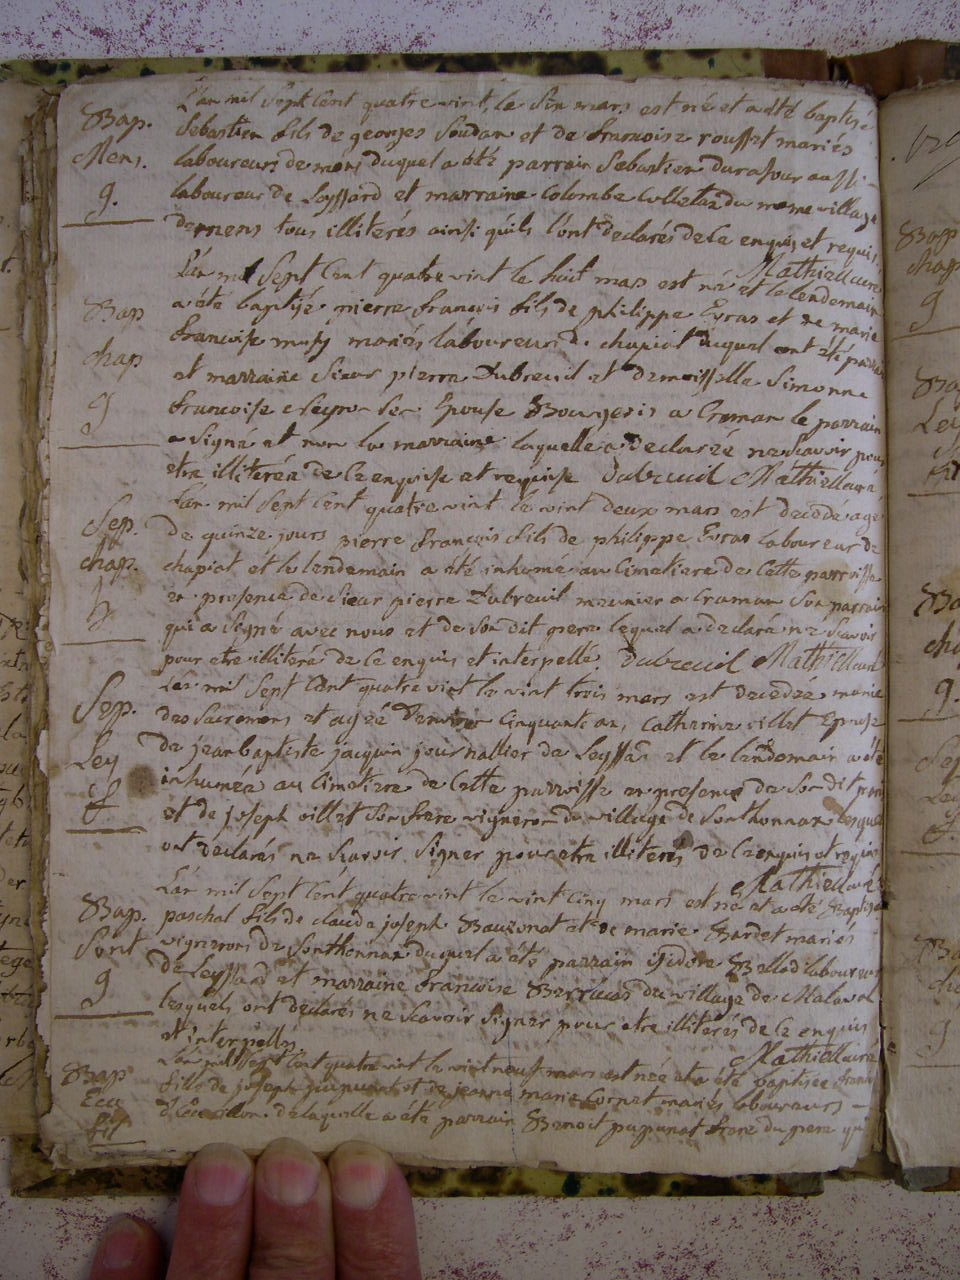 Bap.
Mens.
g.
L'an mil Sept Cent quatre vint, le Six mars est né et a été baptisé
Sebastien fils de georges Soudan et de francoise rousset mariés
laboureurs de mens duquel a été parrain Sebastien dura four aussi
laboureur de Leyssard et marraine Colombe Colletaz du meme village
de mens tous illiterés ainsi quils l'ont declarés de ce enquis et requis
Mathieu curé
Bap
chap
g
L'an mil Sept Cent quatre vint le huit mars est né et le lendemain
a été baptisé pierre francois fils de philippe Evras et de marie
francoise mariés laboureurs de chapiat duquel ont été parrain
et marraine Sieur pierre Dubreuil et demoiselle Simonne
francoise Son Epouse Bourgeois a Croman le parrain
a signé et non la marraine laquelle a declaréé ne Scavoir pour
etre illiteréa de Ce enquise et requise Dubreuil Mathieu curé
Sep.
chap.
h
L'an mil Sept Cent quatre vint le vint deux mars est decedé agé
de quinze jours pierre francois fils de philippe Evras laboureur de
chapiat et le lendemain a été inhumé au Cimetiere de Cette parroisse
en presence de Sieur pierre Dubreuil meunier a Croman Son parrain
qui a Signé avec nous et de Son dit pere lequel a declaré ne Scavoir
pour etre illiteré de Ce enquis et interpellé Dubreuil Mathieu curé
Sep.
Ley
f
L'an mil Sept Cent quatre vint le vint trois mars est decedéé munie
des Sacremens et agéé d'environ Cinquante ans, Catherine villet Epouse
de jean baptiste jacquin journallier de Leyssard et le lendemain a été
inhuméa au Cimetiere de Cette parroisse en presence de Son dit
et de joseph villet Son frere vigneron du village de Sonthonnax lesquels
ont declarés ne Scavoir Signer pour etre illiterés de Ce enquis et requis
Mathieu curé
Bap.
Sont
g
L'an mil Sept Cent quatre vint le vint Cinq mars est né et a été Baptisé
paschal fils de claude joseph Bauzonat et de marie Bardet mariés
vignerons de Sonthonnax duquel a été parrain isidore Ballod laboureur
de Leyssard et marraine francoise du village de Malaval
lesquels ont declarés ne Scavoir Signer pour etre illiterés de Ce enquis
et interpellés Mathieu curé
Bap
fil
L'an mil Sept Cent quatre vint le vint neuf mars est née et a été baptisée
fille de joseph pupunat et de jeanne marie Cornet mariés laboureurs
de laquelle a été parrain Benoit pupunat frere du pere qui